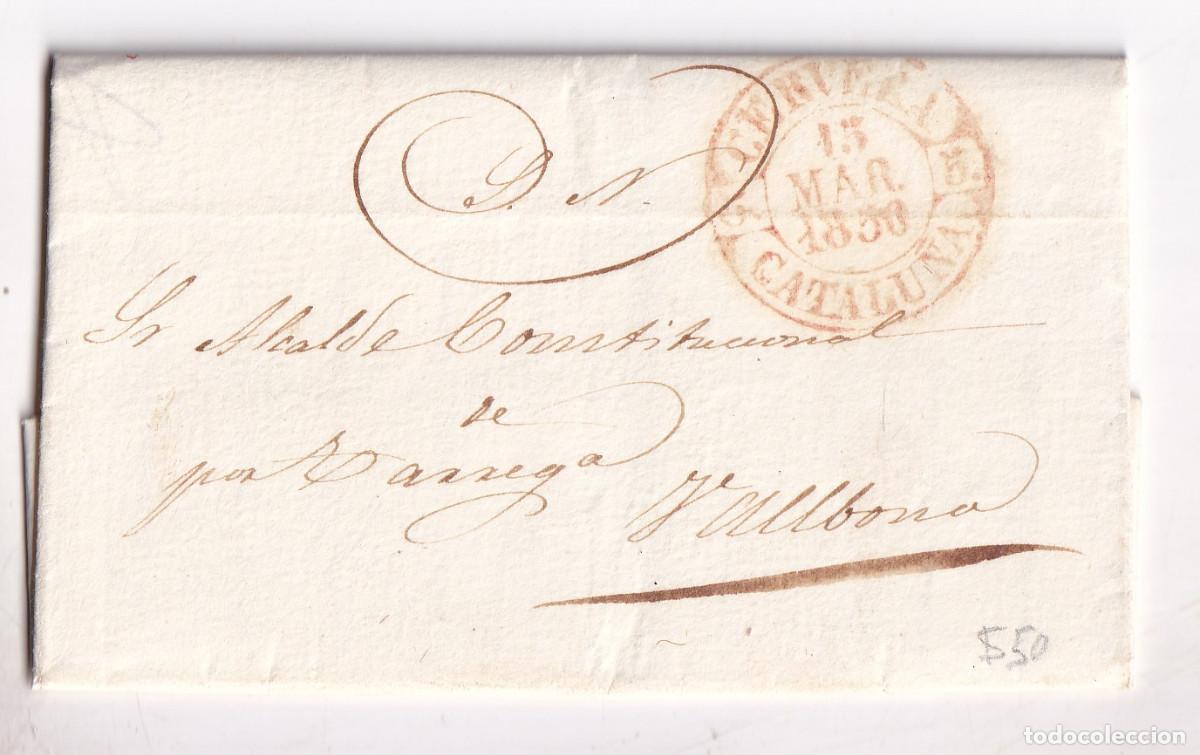 S. N.
CERVERA
15
MAR.
1850
5.
CATALUÑA
Sr Alcalde Constitucional
de
por Tarrega
Vallbona
$50
todocoleccion